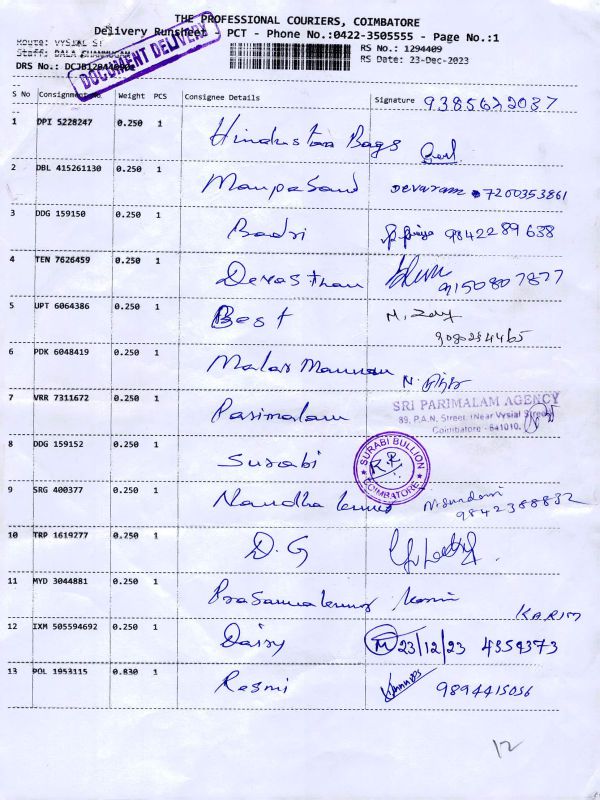 THE PROFESSIONAL COURIERS, COIMBATORE
Delivery Runsheet PCT - Phone No.:0422-3505555 - Page No.:1
Route: VYSIAL ST
RS No.: 1294409
DOCUMENT DELIVERY
RS Date: 23-Dec-2023
DRS No.:
S No Consignment Weight PCS Consignee Details Signature 9385672037
1 DPI 5228247 0.250 1 Hindustan Bags
2 DBL 415261130 0.250 1 Manpasand Devaram 7200353861
3 DDG 159150 0.250 1 Badri 9842289638
4 TEN 7626459 0.250 1 Devasthan 9150807877
5 UPT 6064386 0.250 1 Best
6 PDK 6048419 0.250 1 Malar Mannan
7 VRR 7311672 0.250 1 Parimalam
SRI PARIMALAM AGENCY
89, P.A.N. Street, (Near Vysial Street)
Coimbatore - 641010.
8 DDG 159152 0.250 1 Surabi
SURABI BULLION
COIMBATORE
9 SRG 400377 0.250 1 Nandha kumar N. Sundari
9842388832
10 TRP 1619277 0.250 1 D. G
11 MYD 3044881 0.250 1 Prasannakumar KARIM
12 IXM 505594692 0.250 1 Daisy 23/12/23 4354373
13 POL 1953115 0.830 1 Resmi 9894415056
12